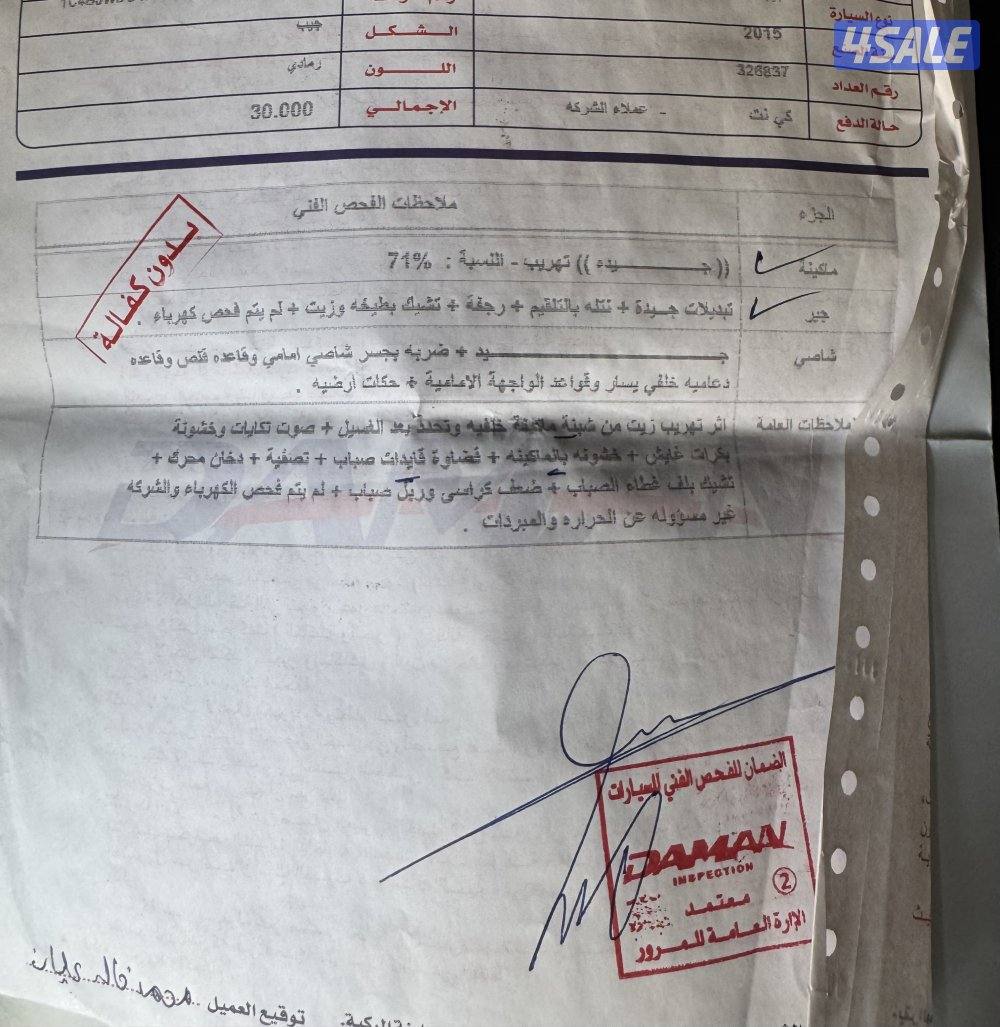 4SALE
نوع السيارة
2015
الشكل
جيب
رقم العداد
326837
اللون
رمادي
حالة الدفع
كي نت - عملاء الشركه
الإجمالي
30.000
الجزء
ملاحظات الفحص الفني
بدون كفالة
ماكينة
(( جـــــيده )) تهريب - النسبة : 71%
جير
تبديلات جيدة + نتله بالتلقيم + رجفة + تشيك بطيخه وزيت + لم يتم فحص كهرباء .
شاصي
جـــــيد + ضربه بجسر شاصي امامي وقاعده قلص وقاعده
دعاميه خلفي يسار وقواعد الواجهة الامامية + حكات ارضيه .
ملاحظات العامة
اثر تهريب زيت من شبنة ماكينة خلفيه وتحدد بعد الغسيل + صوت تكايات وخشونة
بكرات قايش + خشونه بالماكينه + فضاوة قايدات صباب + تصفية + دخان محرك +
تشيك بلف غطاء الصباب + ضعف كراسي وربل صباب + لم يتم فحص الكهرباء والشركه
غير مسؤوله عن الحراره والمبردات .
الضمان للفحص الفني للسيارات
DAMAN
INSPECTION
2
معتمد
الإدارة العامة للمرور
توقيع العميل